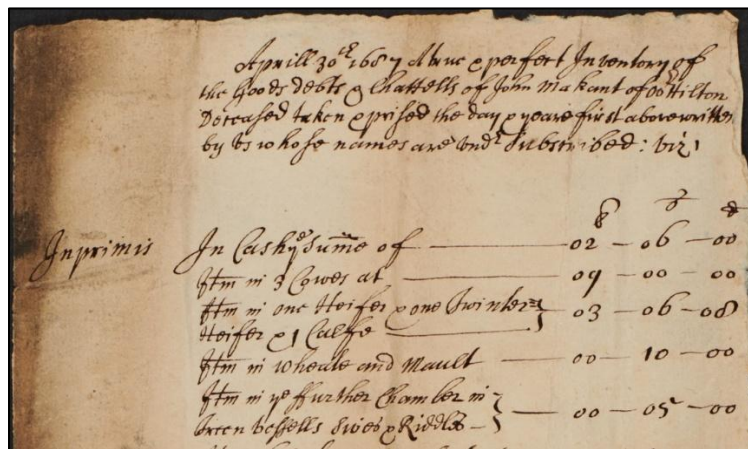 Aprill 30th 1687 A true & perfect Inventory of
the Goods debts & Chattells of John Makant of Hilton
Deceased taken & prised the day & yeare first abovewritten
by Us whose names are Undr Subscribed: viz
£ s d
Inprimis In Cash ye sume of — 02 — 06 — 00
Itm in 3 Cowes at — 09 — 00 — 00
Itm in one Heifer & one Twinter
Heifer & 1 Calfe — 03 — 06 — 08
Itm in wheate and Mault — 00 — 10 — 00
Itm in ye ffurther Chamber in
treen Vessells Sives & Riddls — 00 — 05 — 00